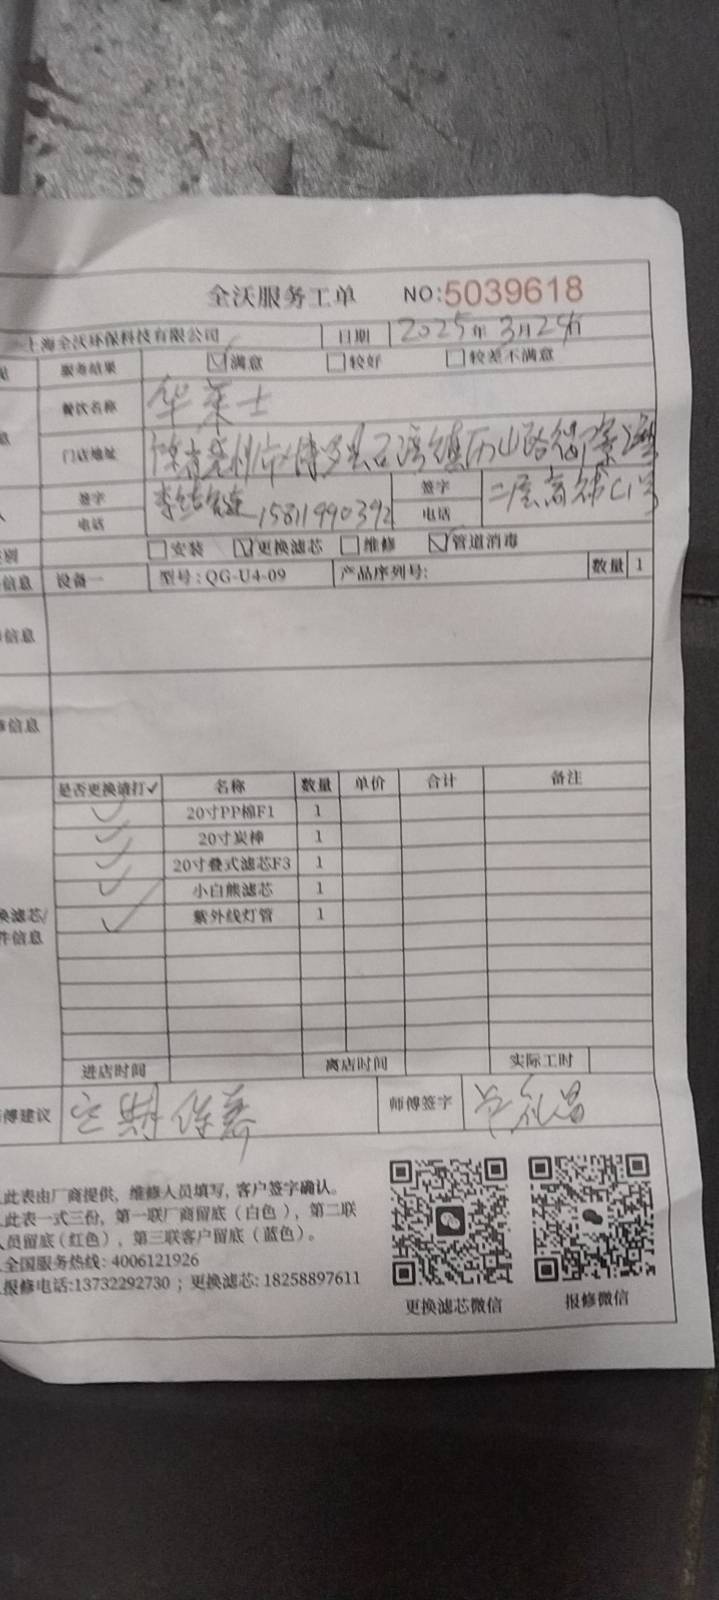 全沃服务工单 NO:5039618
上海全沃环保科技有限公司 日期 2025年3月29日
服务结果 满意 较好 较差不满意
餐饮名称 华莱士
门店地址 石湾镇历山路
签字 签字 二层商铺C1号
电话 15811990392 电话
别 安装 更换滤芯 维修 管道消毒
信息 设备一 型号：QG-U4-09 产品序列号： 数量 1
信息
信息
是否更换请打✓ 名称 数量 单价 合计 备注
✓ 20寸PP棉F1 1
✓ 20寸炭棒 1
✓ 20寸叠式滤芯F3 1
✓ 小白熊滤芯 1
✓ 紫外线灯管 1
换滤芯/
件信息
进店时间 离店时间 实际工时
傅建议 定期保养 师傅签字
此表由厂商提供，维修人员填写，客户签字确认。
此表一式三份，第一联厂商留底（白色），第二联
人员留底（红色），第三联客户留底（蓝色）。
全国服务热线：4006121926
报修电话:13732292730 ；更换滤芯: 18258897611
更换滤芯微信 报修微信